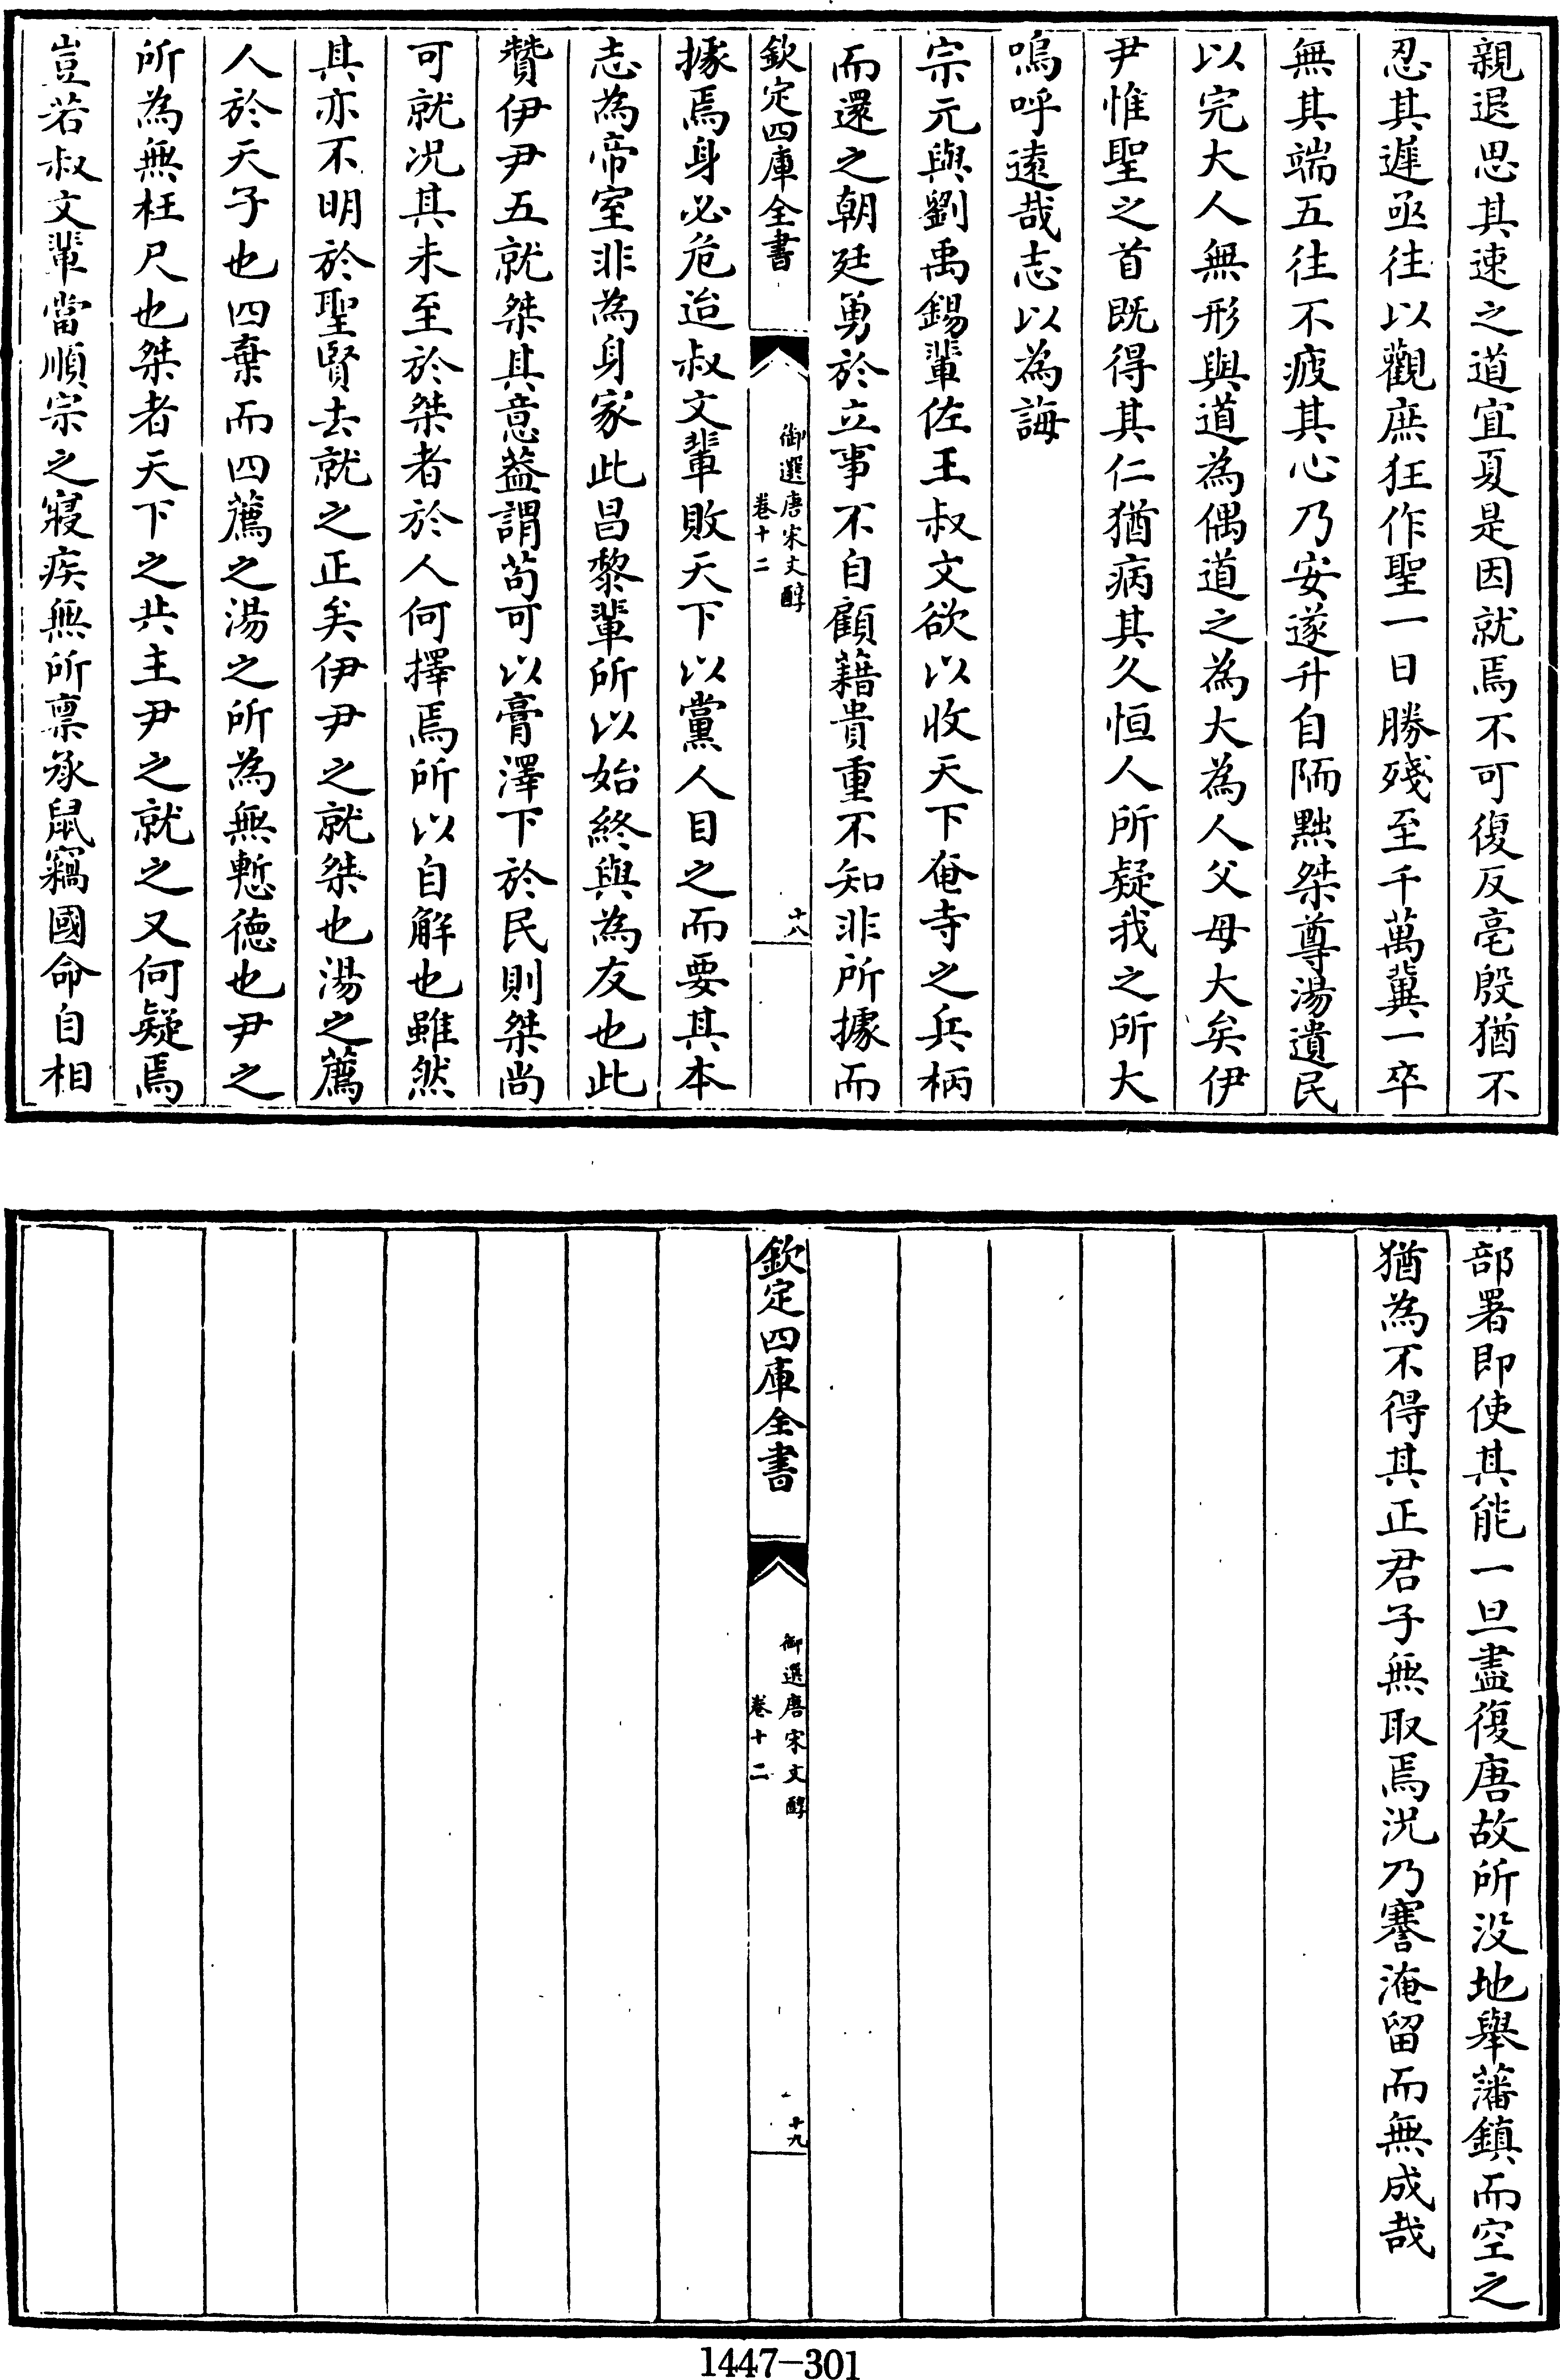 親退思其速之道宜夏是因就焉不可復反亳殷猶不
忍其遲亟往以觀庶狂作聖一日勝殘至千萬冀一卒
無其端五往不疲其心乃安遂升自陑黜桀尊湯遺民
以完大人無形與道為偶道之為大為人父母大矣伊
尹惟聖之首既得其仁猶病其久恒人所疑我之所大
嗚呼遠哉志以為誨
宗元與劉禹錫輩佐王叔文欲以收天下奄寺之兵柄
而還之朝廷勇於立事不自顧籍貴重不知非所據而
欽定四庫全書
御選唐宋文醇
卷十二
十八
據焉身必危迨叔文輩敗天下以黨人目之而要其本
志為帝室非為身家此昌黎輩所以始終與為友也此
贊伊尹五就桀其意葢謂苟可以膏澤下於民則桀尚
可就况其未至於桀者於人何擇焉所以自解也雖然
其亦不明於聖賢去就之正矣伊尹之就桀也湯之薦
人於天子也四棄而四薦之湯之所為無慙德也尹之
所為無枉尺也桀者天下之共主尹之就之又何疑焉
豈若叔文輩當順宗之寢疾無所禀承鼠竊國命自相
部署即使其能一旦盡復唐故所没地舉藩鎮而空之
猶為不得其正君子無取焉況乃謇淹留而無成哉
欽定四庫全書
御選唐宋文醇
卷十二
十九
1447-301